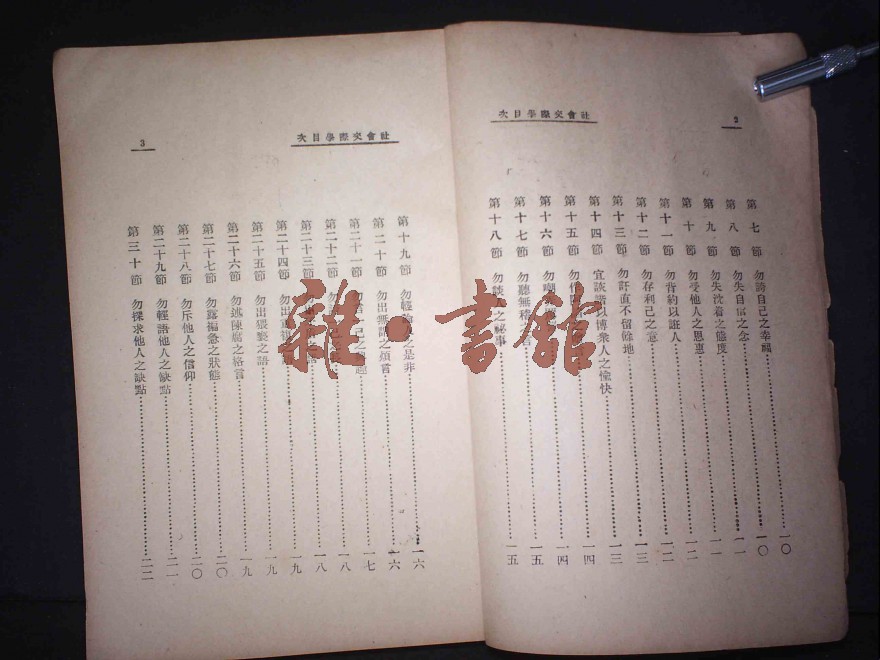 社會交際學目次
2
第七節 勿誇自己之幸福 一〇
第八節 勿失自富之念 一一
第九節 勿失沈着之態度 一一
第十節 勿受他人之恩惠 一二
第十一節 勿背約以誑人 一二
第十二節 勿存利己之意 一三
第十三節 勿訐直不留餘地 一三
第十四節 宜談諧以博衆人之愉快 一四
第十五節 勿作 一四
第十六節 勿嘲 一五
第十七節 勿聽無稽 一五
第十八節 勿談人之祕事
社會交際學目次
3
第十九節 勿輕論人之是非 一六
第二十節 勿出無謂之煩言 一六
第二十一節 一己之 一七
第二十二節 一八
第二十三節 一八
第二十四節 勿出 一九
第二十五節 勿出猥褻之語 一九
第二十六節 勿述陳腐之格言 一九
第二十七節 勿露褊急之狀態 二〇
第二十八節 勿斥他人之信仰 二〇
第二十九節 勿輕語他人之缺點 二一
第三十節 勿探求他人之缺點 二二
雜·書館